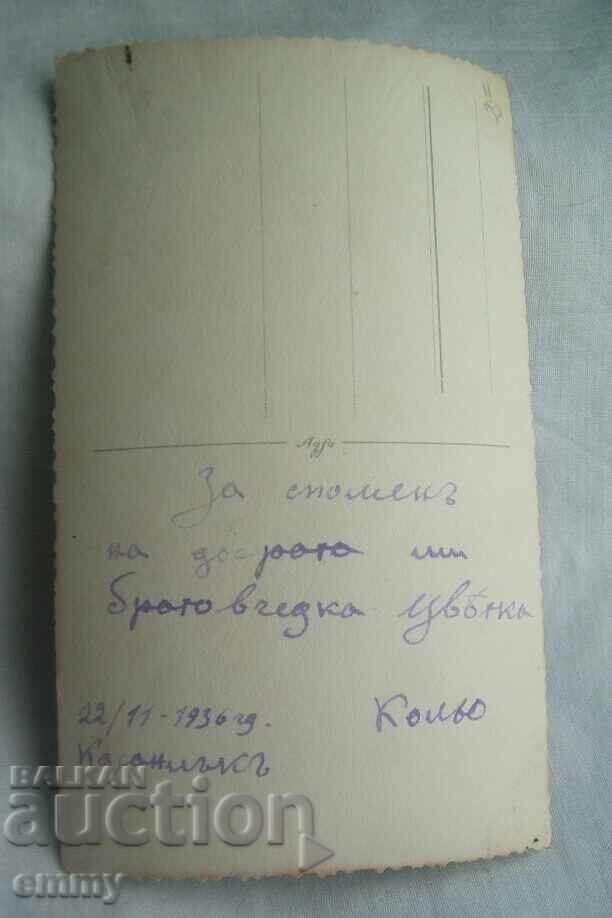 Адрѣ
За споменъ
на добрата ми
братовчедка Цвѣтка
22/11-1936 гд. Кольо
Казанлъкъ
BALKAN
auction
emmy